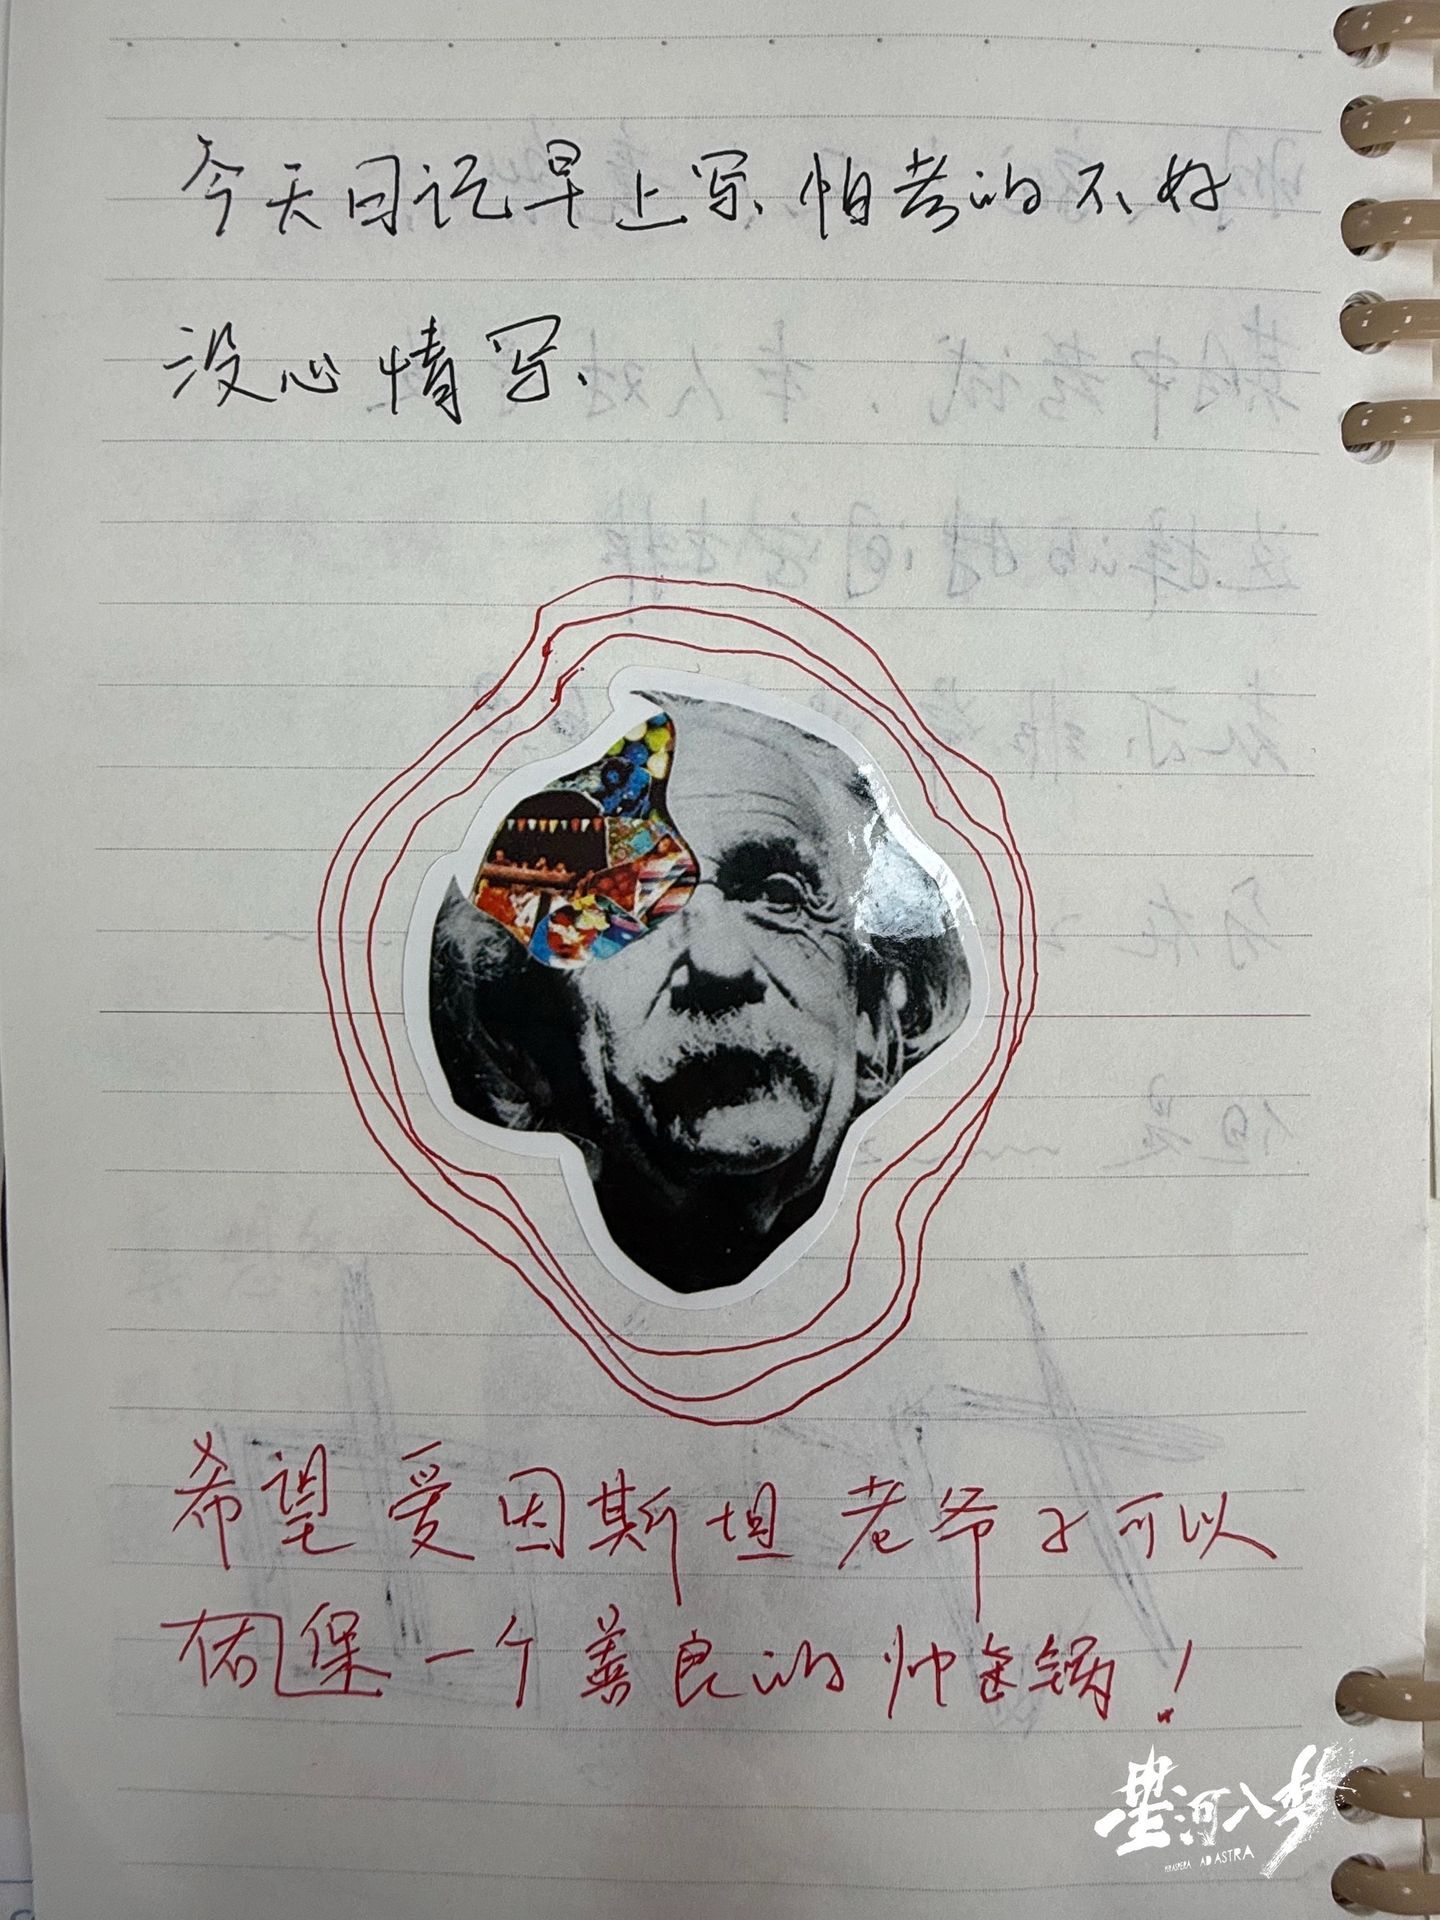 今天日记早上写、怕考的不好
没心情写、
希望 爱因斯坦 老爷子可以
佑保一个善良的帅金锅！
星河入梦
PER ASPERA AD ASTRA